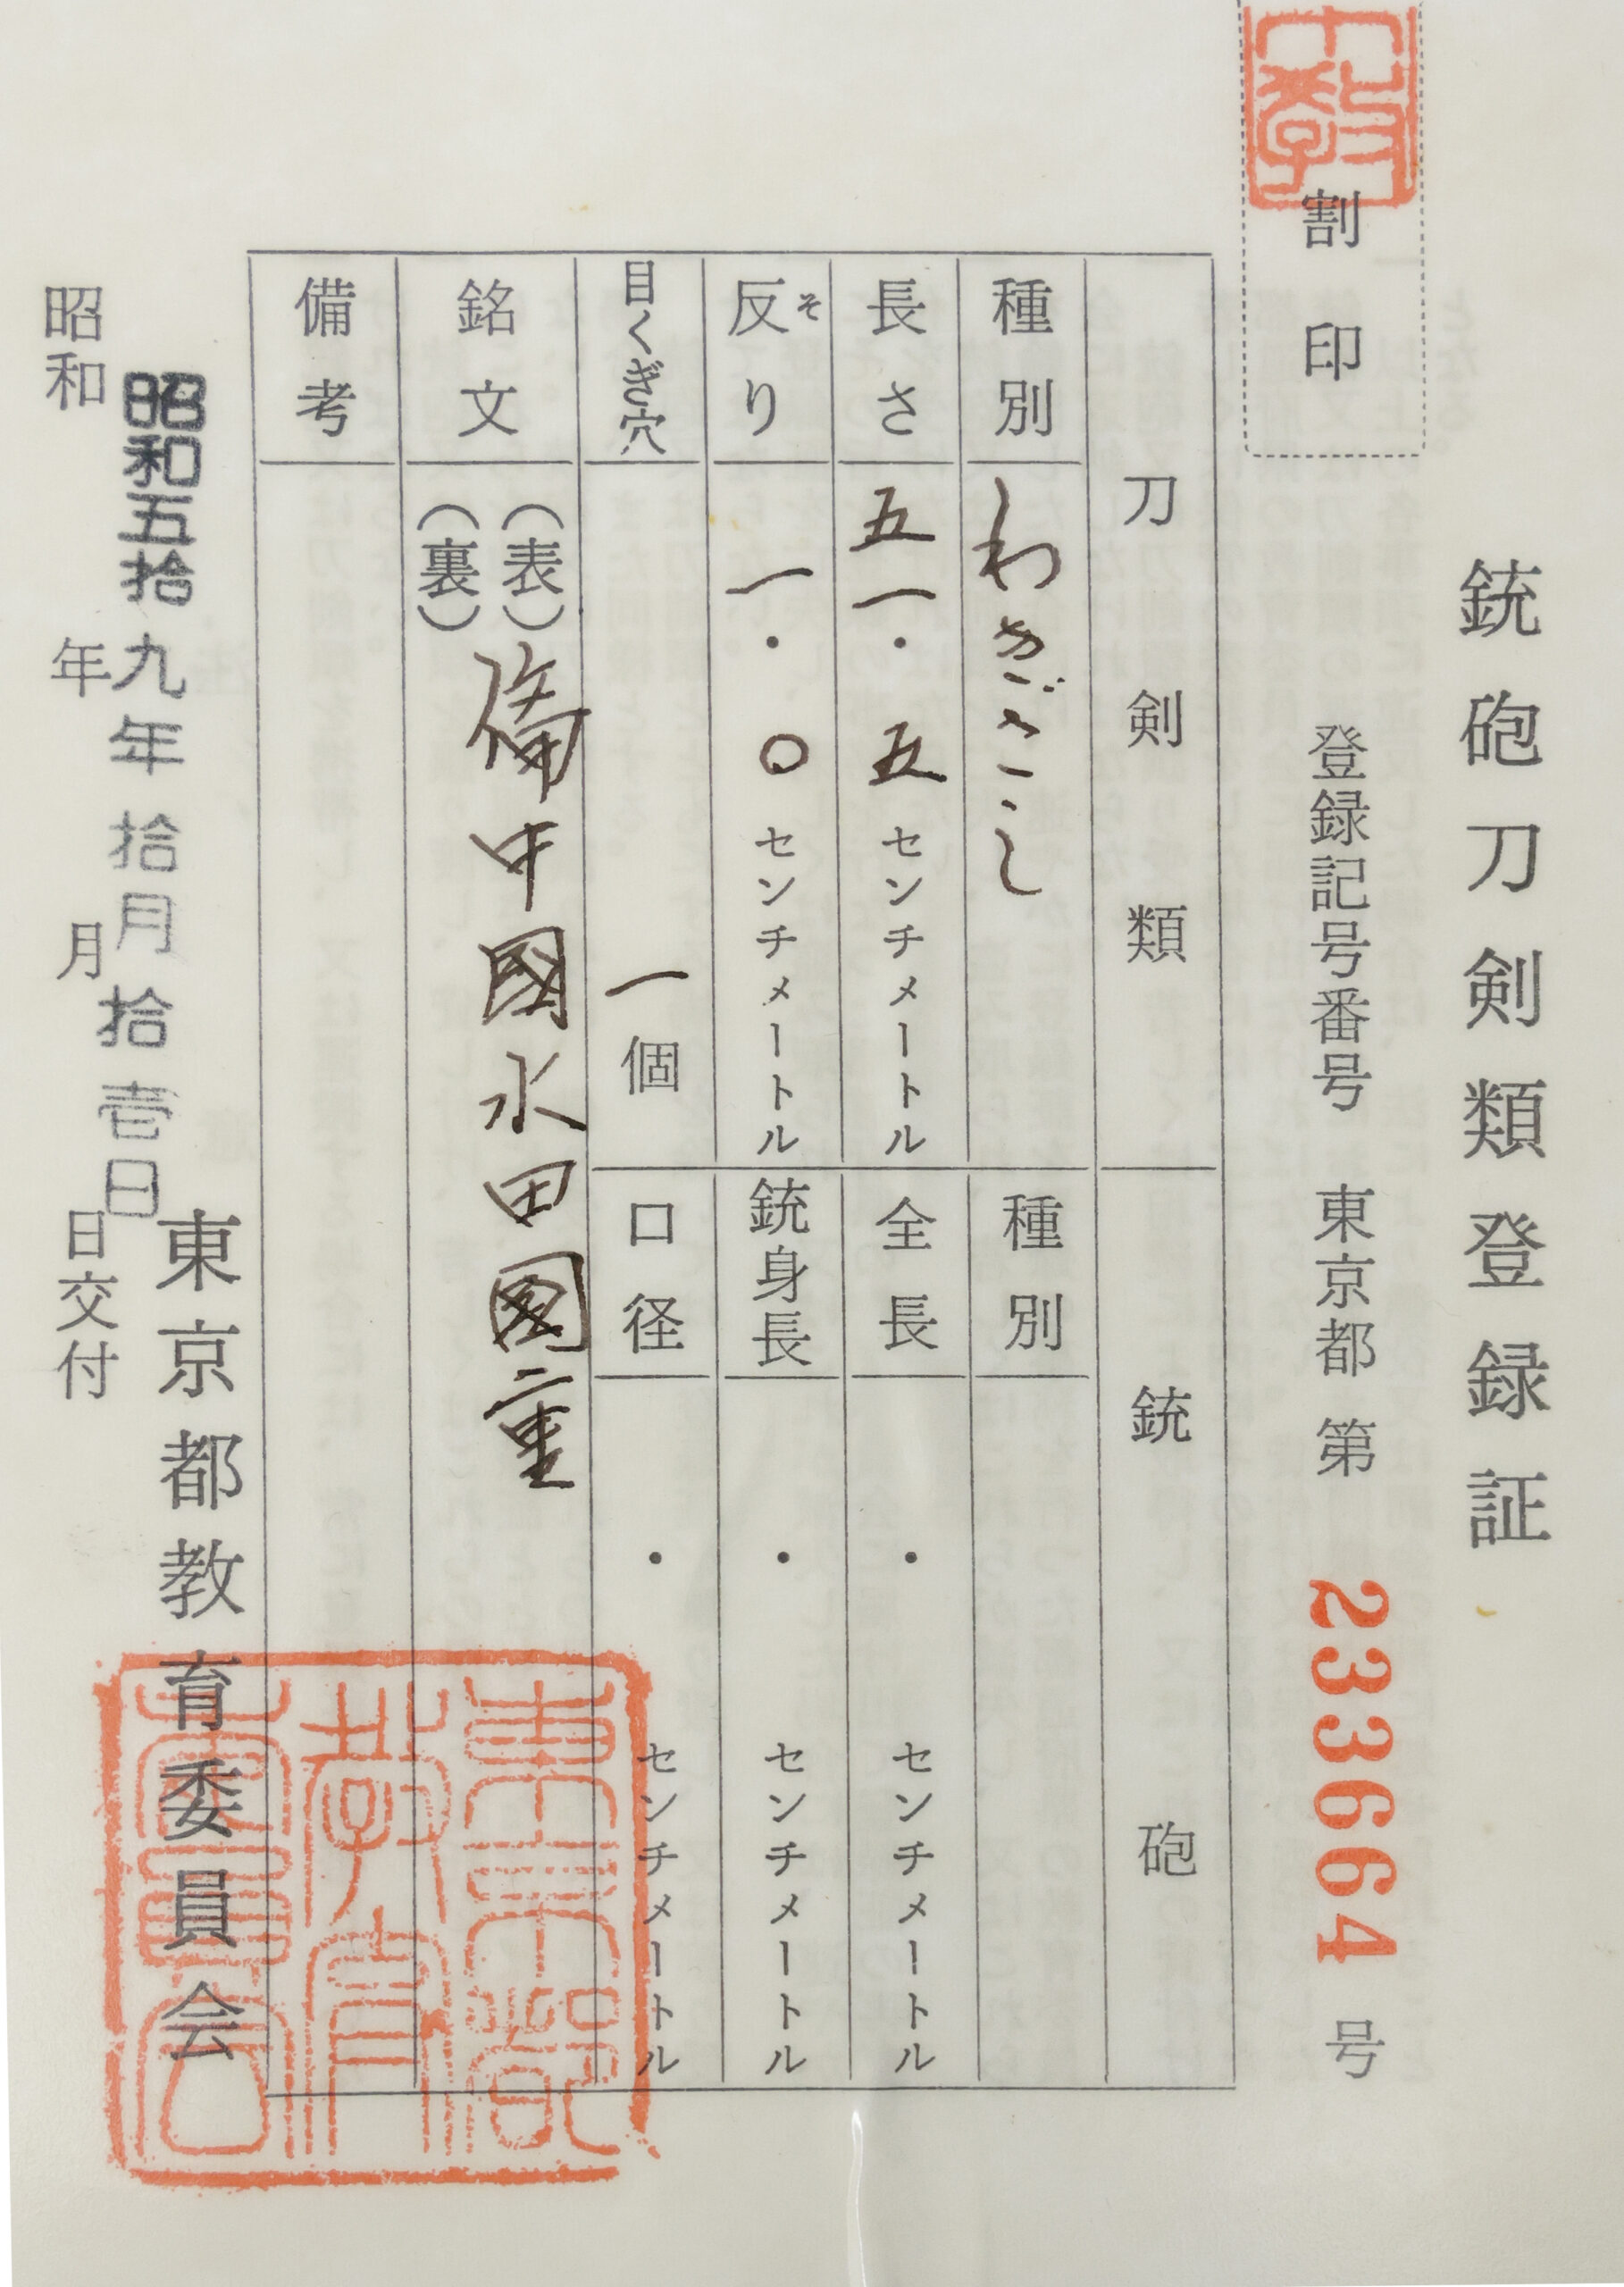 銃砲刀剣類登録証
割印
登録記号番号 東京都 第 233664 号
刀剣類
種別 わきざし
長さ 五一・五 センチメートル
反り そ 一・〇 センチメートル
目くぎ穴 一 個
銃砲
種別
全長 ・ センチメートル
銃身長 ・ センチメートル
口径 ・ センチメートル
銘文 (表) (裏) 備中國水田國重
備考
昭和五拾九年拾月拾壱日
昭和 年 月 日交付
東京都教育委員会